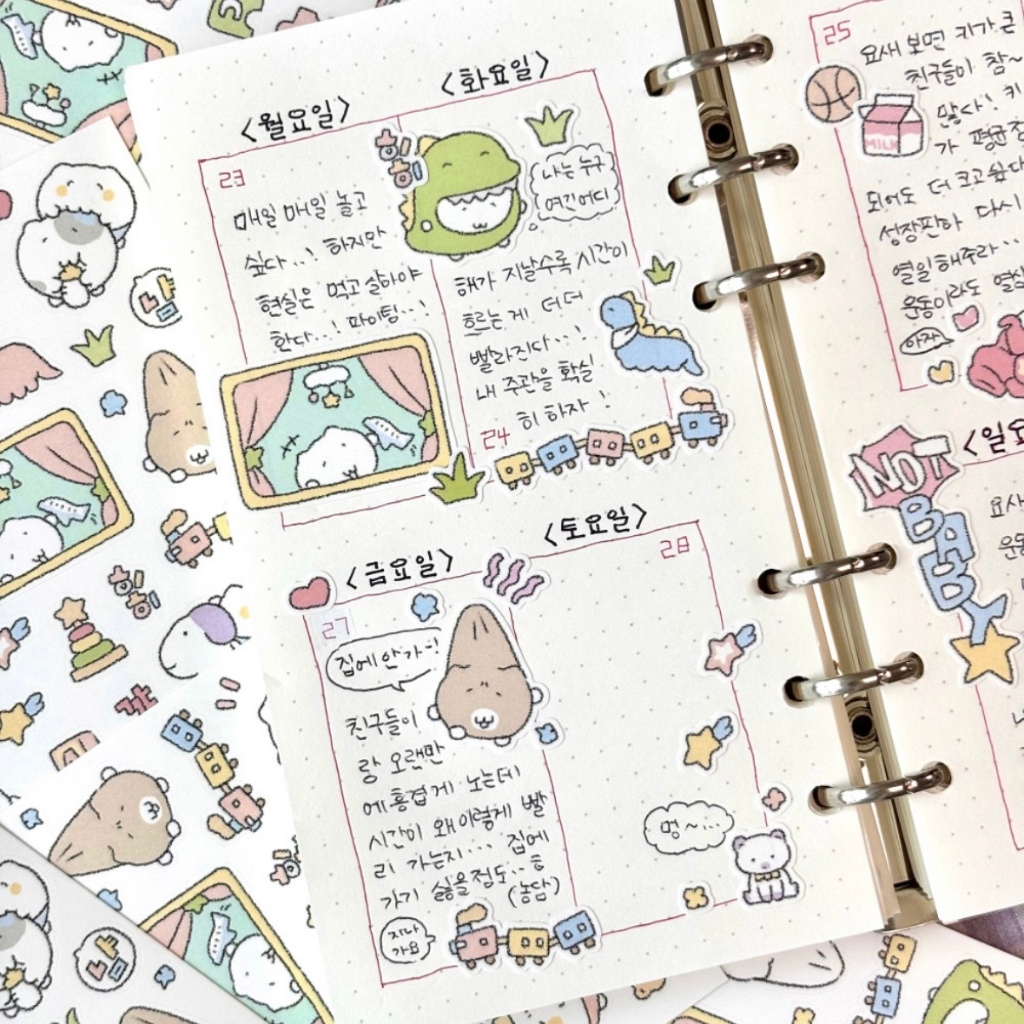 <월요일>
23
매일 매일 놀고
싶다..! 하지만
현실은 먹고 살아야
한다..! 파이팅..!
<화요일>
나는 누구
여긴어디
해가 지날수록 시간이
흐르는게 더더
빨라진다..!
내 주관을 확실
히 하자!
24
<금요일>
27
집에 안가~!
친구들이
랑 오랜만
에 흥겹게 노는데
시간이 왜이렇게 빨
리 가는지... 집에
가기 싫을정도..ㅎ
(농담)
지나
가요
<토요일>
28
멍~...
25
요새 보면 키가 큰
친구들이 참~
많다! 키
가 평균
되어도 더 크고싶다
성장판아 다시
열일해주라..
운동이라도 열심
아자
MILK
NOT
BABY
<일요
요새
운동